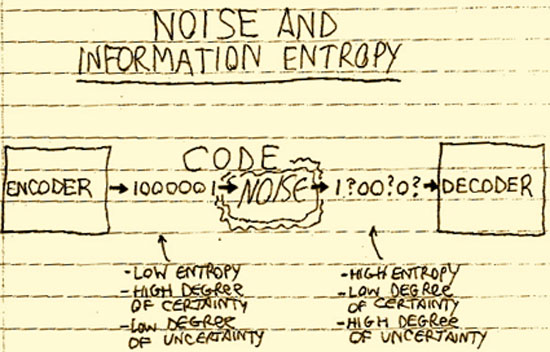 NOISE AND
INFORMATION ENTROPY
CODE
ENCODER → 1000001 → NOISE → 1?00?0? → DECODER
-LOW ENTROPY
-HIGH DEGREE
OF CERTAINTY
-LOW DEGREE
OF UNCERTAINTY
-HIGH ENTROPY
-LOW DEGREE
OF CERTAINTY
-HIGH DEGREE
OF UNCERTAINTY